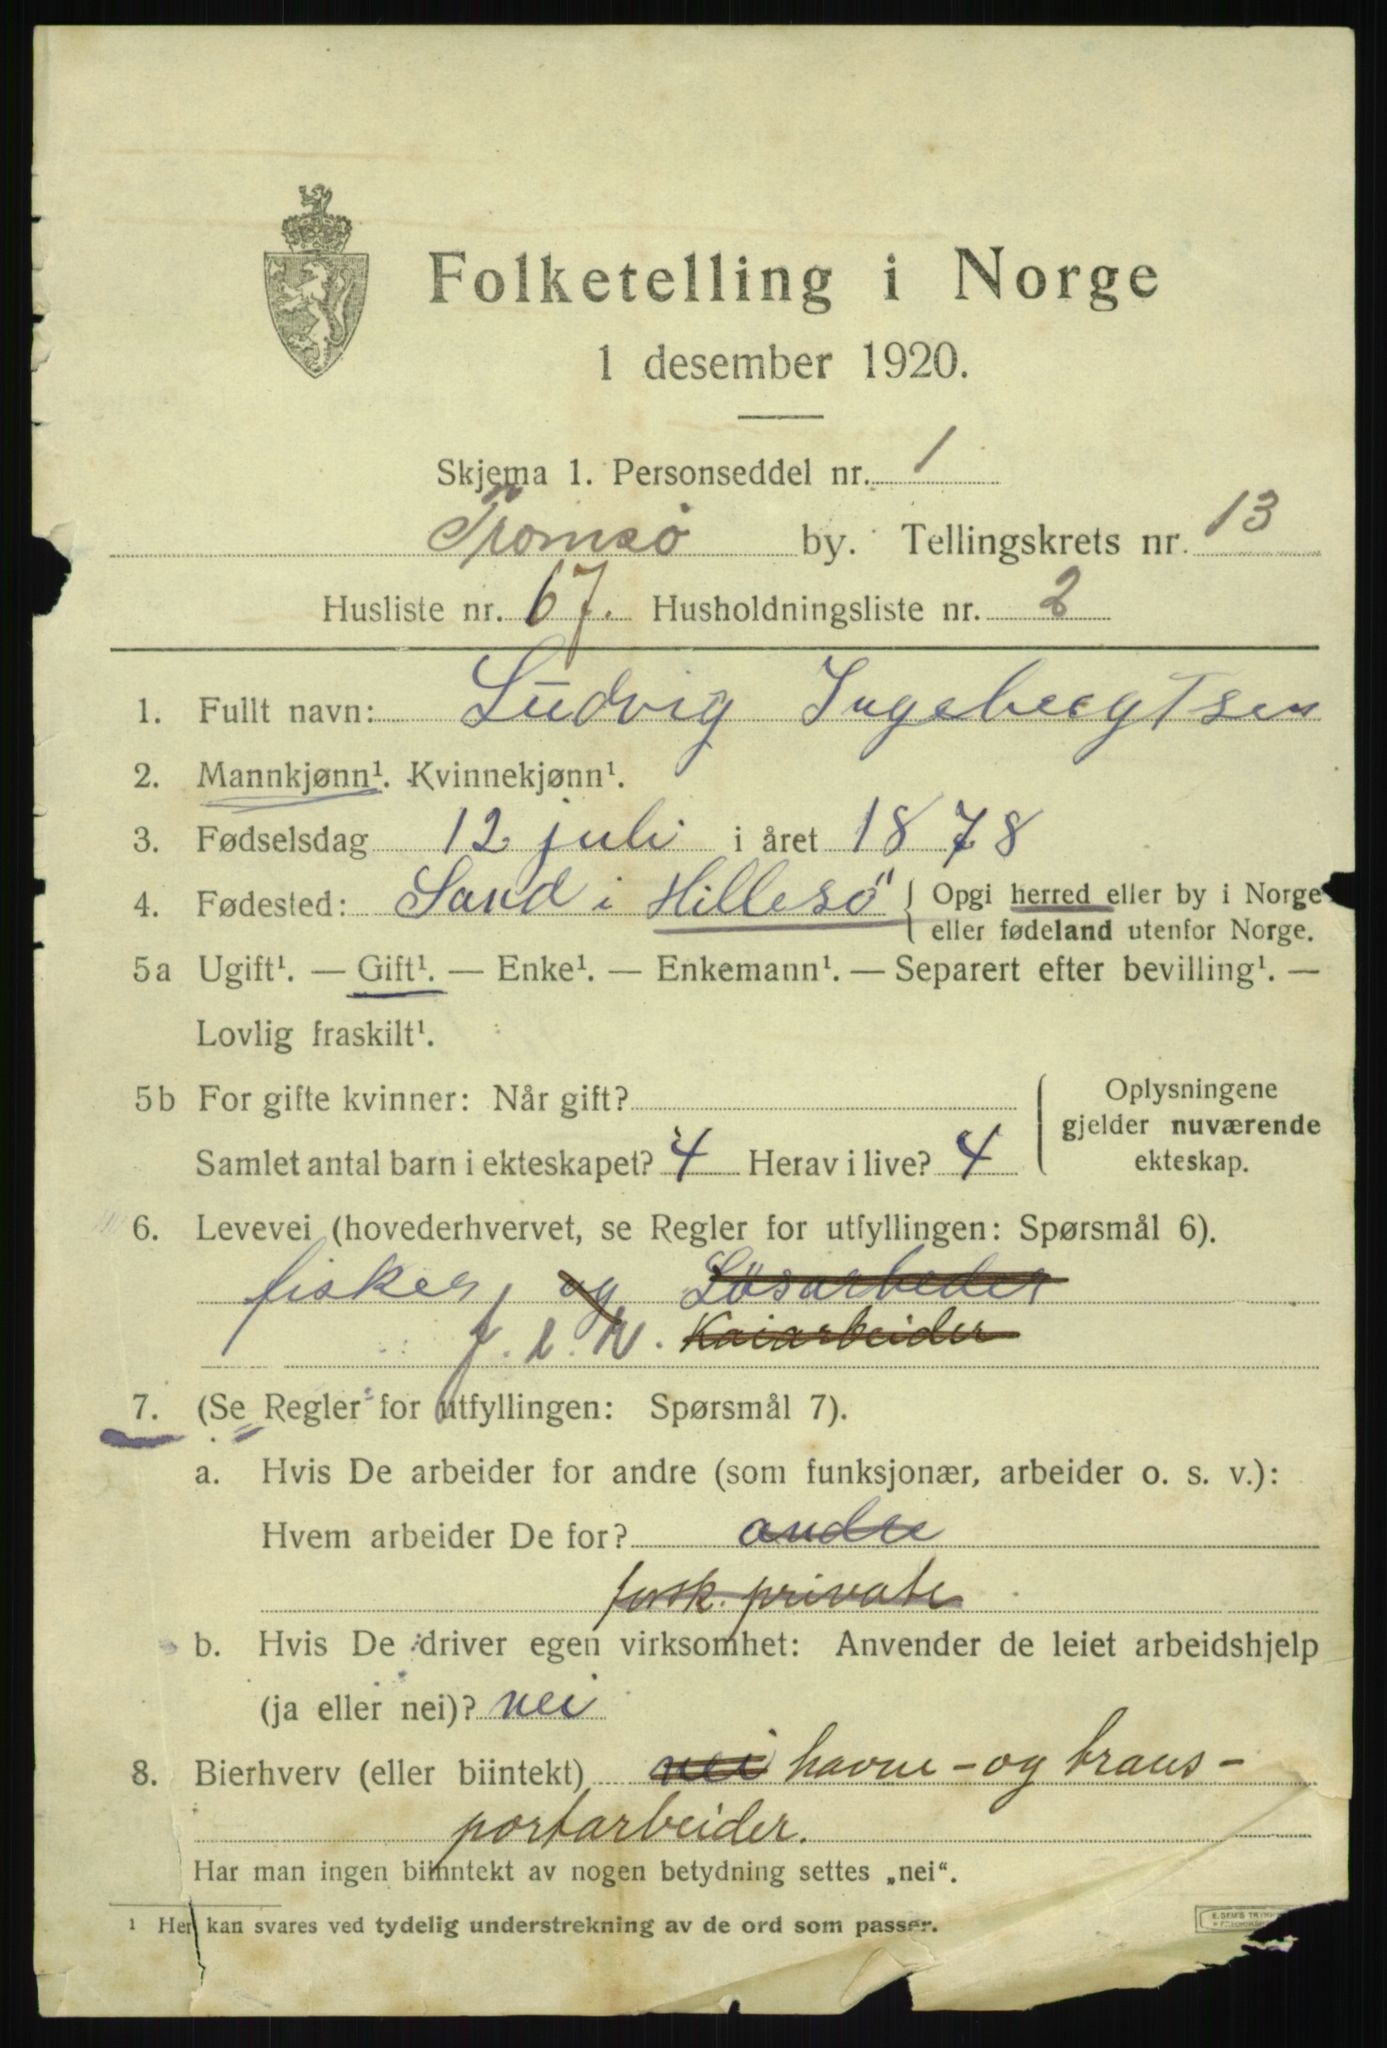 Folketelling i Norge
1 desember 1920.
Skjema 1. Personseddel nr. 1
Tromsø by. Tellingskrets nr. 13
Husliste nr. 67. Husholdningsliste nr. 2
1. Fullt navn: Ludvig Ingebergtsen
2. Mannkjønn¹. Kvinnekjønn¹.
3. Fødselsdag 12 juli i året 1878
4. Fødested: Sand i Hillesö { Opgi herred eller by i Norge
eller fødeland utenfor Norge.
5a Ugift¹. — Gift¹. — Enke¹. — Enkemann¹. — Separert efter bevilling¹. —
Lovlig fraskilt¹.
5b For gifte kvinner: Når gift?
Samlet antal barn i ekteskapet? 4 Herav i live? 4
Oplysningene
gjelder nuværende
ekteskap.
6. Levevei (hovederhvervet, se Regler for utfyllingen: Spørsmål 6).
fisker, og Løsarbeder
f. l. N. Kaiarbeider
7. (Se Regler for utfyllingen: Spørsmål 7).
a. Hvis De arbeider for andre (som funksjonær, arbeider o. s. v.):
Hvem arbeider De for? andre
forsk. private
b. Hvis De driver egen virksomhet: Anvender de leiet arbeidshjelp
(ja eller nei)? nei
8. Bierhverv (eller biintekt) nei havne- og trans-
portarbeider.
Har man ingen biinntekt av nogen betydning settes „nei“.
¹ Her kan svares ved tydelig understrekning av de ord som passer.